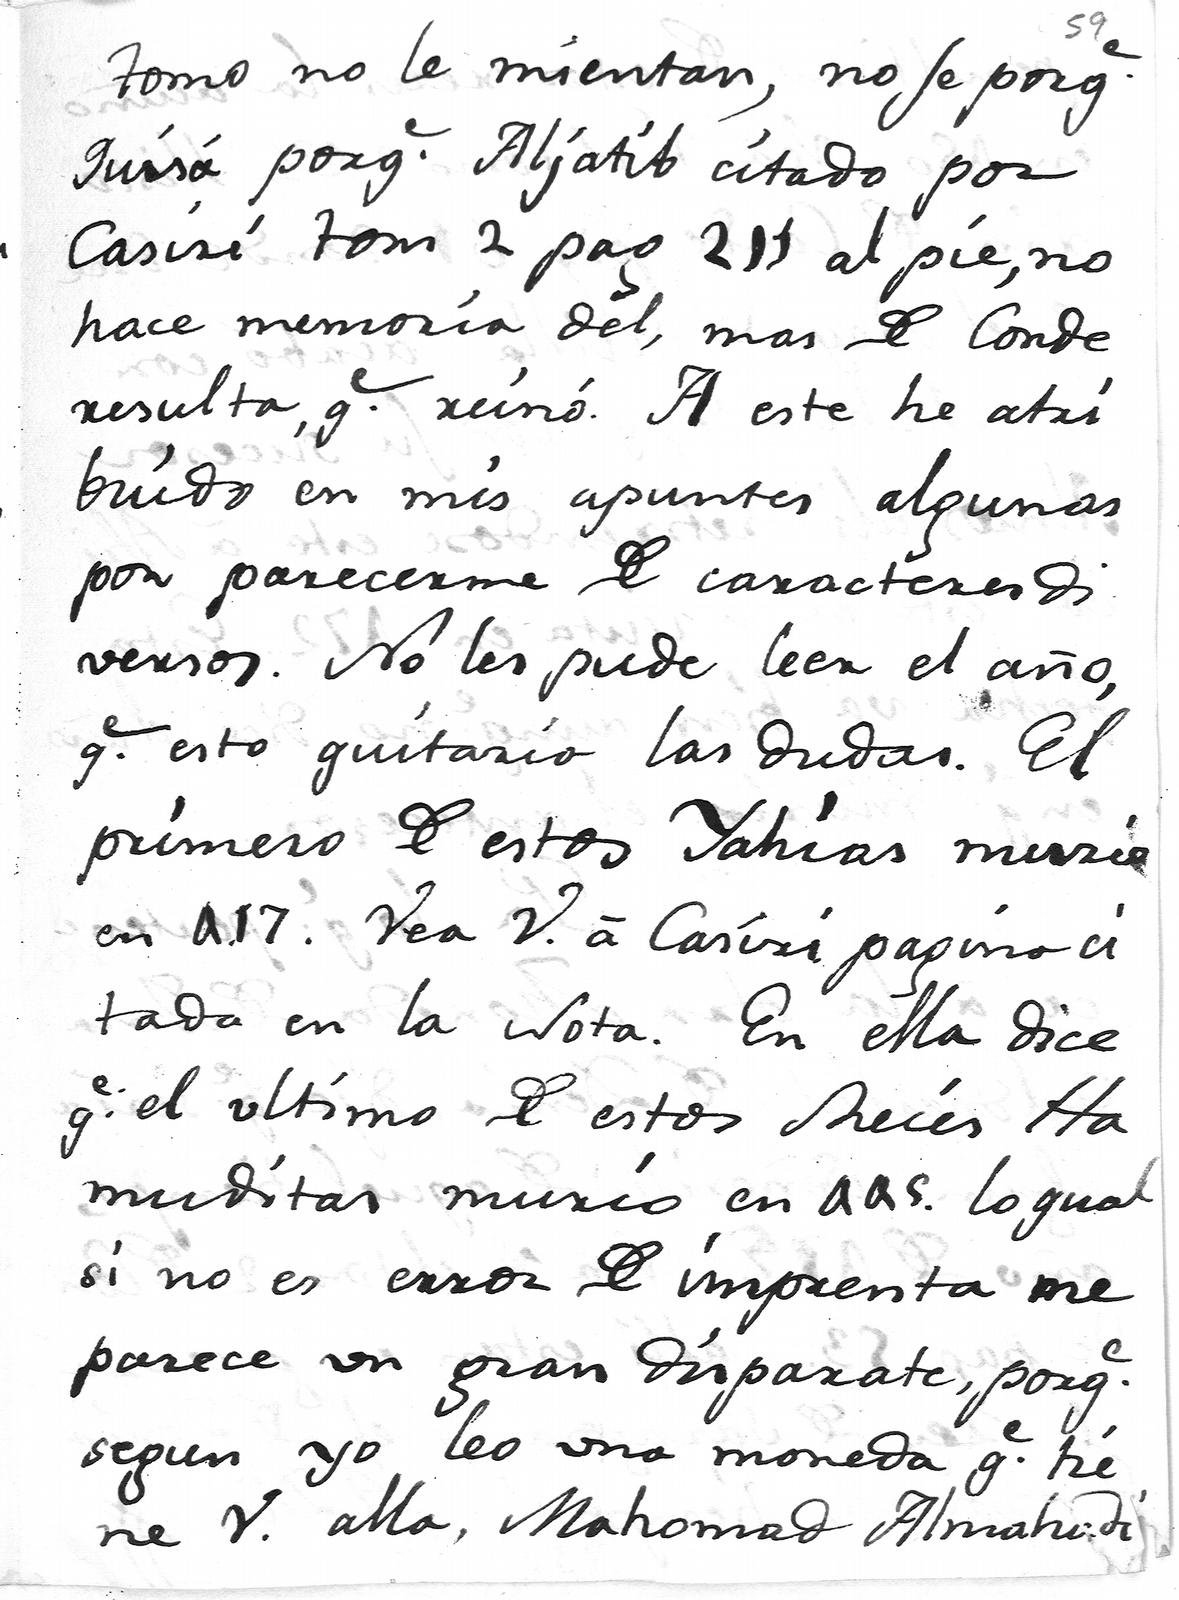 59
tomo no le mientan, no se porq.e
Quisá porq.e Aljatib citado por
Casiri tom 2 pag 211 al pie, no
hace memoria dél, mas de Conde
resulta, q.e reinó. A este he atri
buido en mis apuntes algunas
por parecerme de caracteres di
versos. No les pude leer el año,
q.e esto quitaria las dudas. El
primero de estos Yahias murió
en 417. Vea V. á Casiri pagina ci
tada en la Nota. En ella dice
q.e el ultimo de estos Reies Ha
muditas murio en 445. lo qual
si no es error de imprenta me
parece un gran disparate, porq.e
segun yo leo una moneda q.e tie
ne V. alla, Mahomad Almahdi